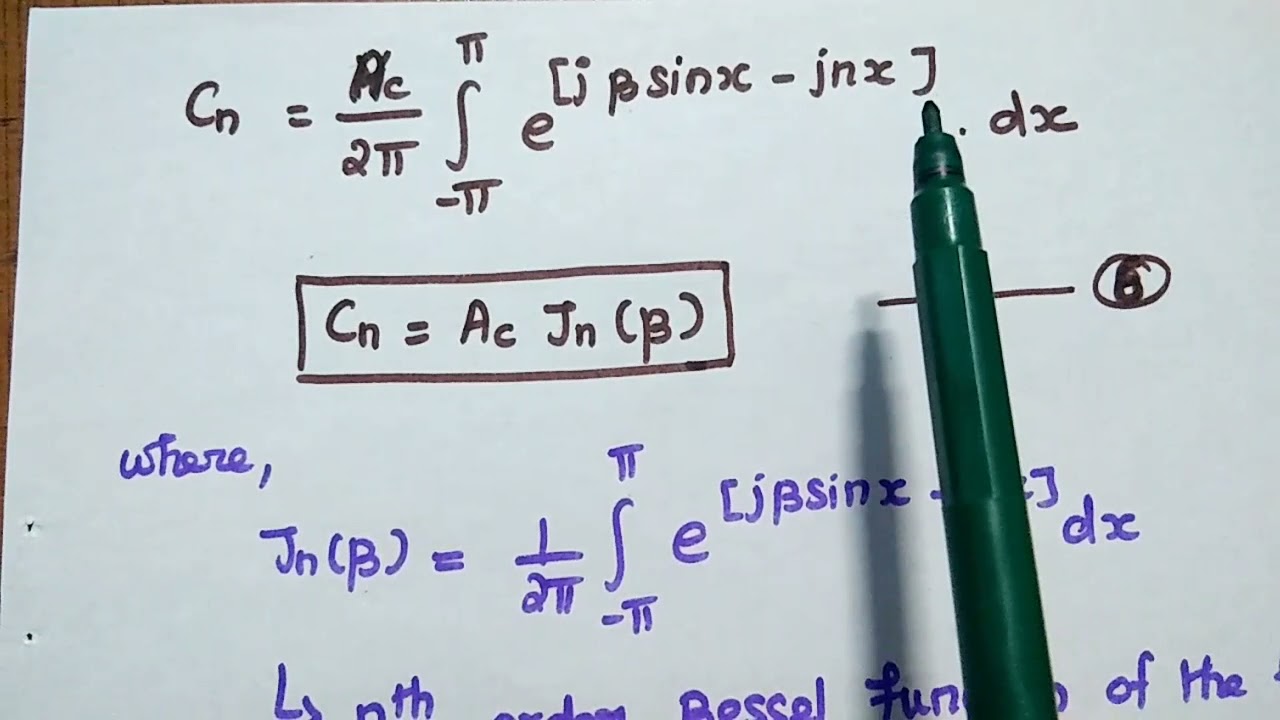 Cn = Ac/2π ∫_{-π}^{π} e^{[jβsinx - jnx]} . dx
Cn = Ac Jn(β) — 6
where,
Jn(β) = 1/2π ∫_{-π}^{π} e^{[jβsinx - x]} dx
↳ nth order Bessel of the